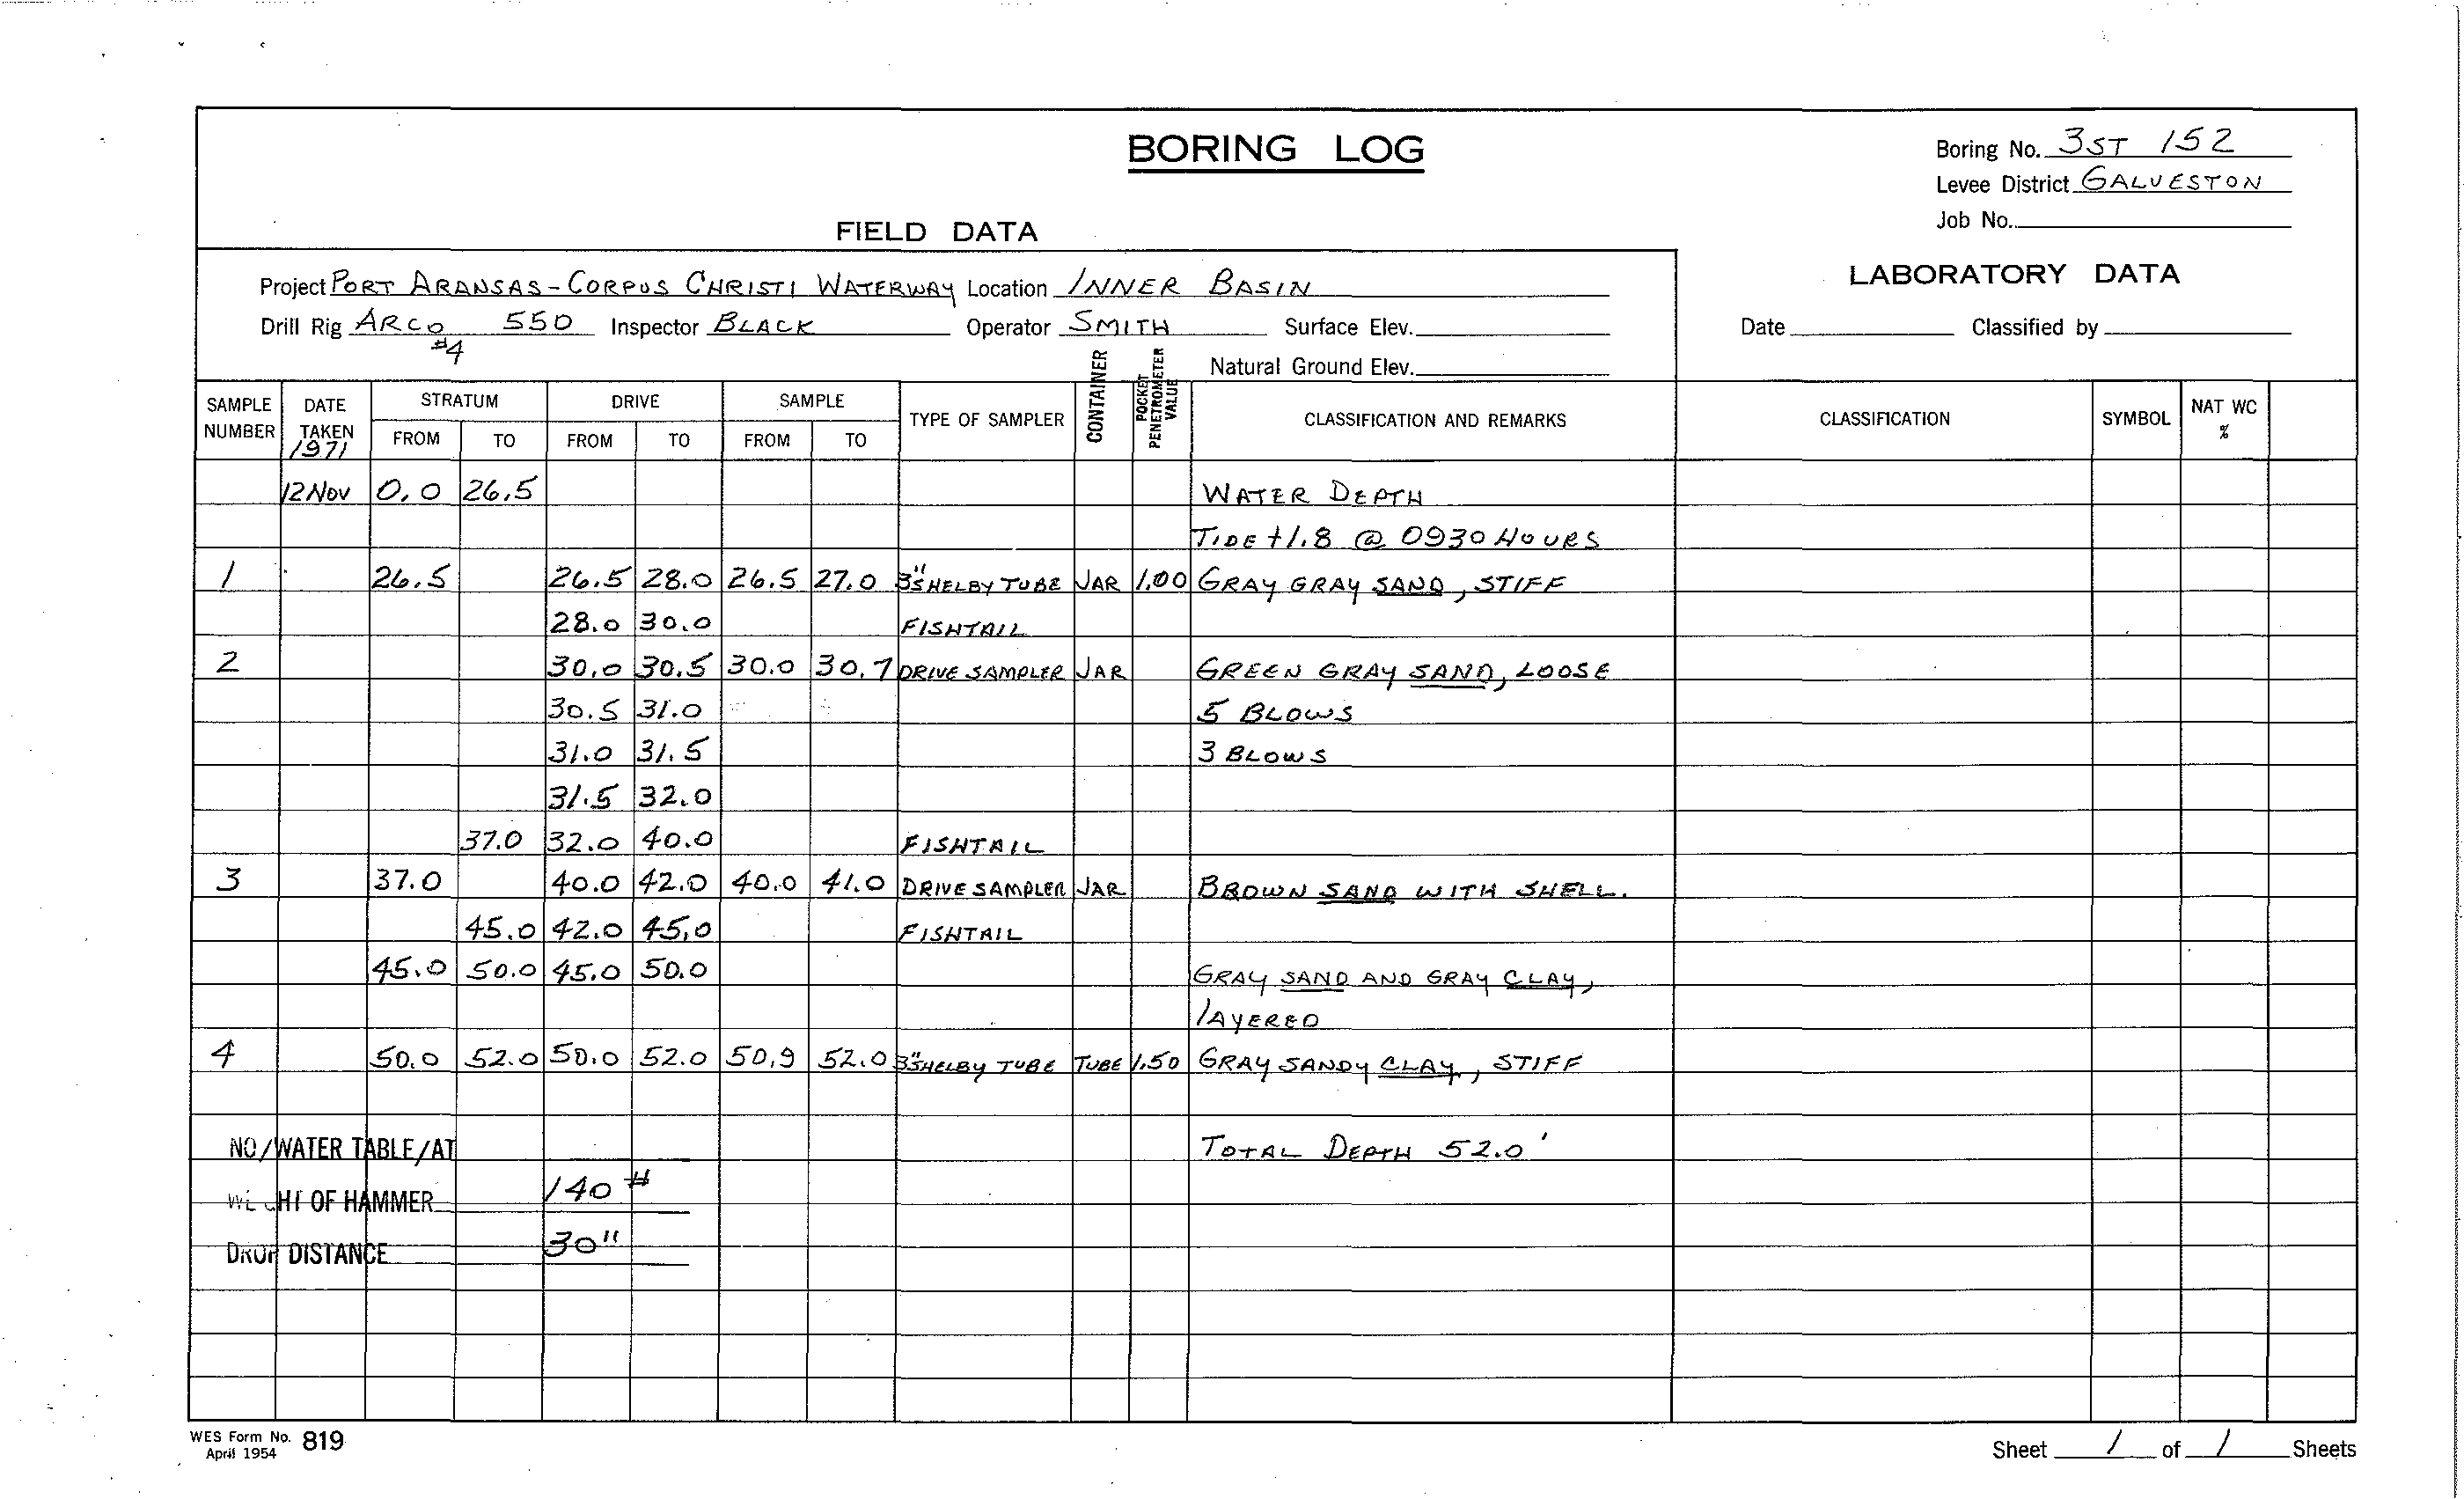 BORING LOG
Boring No. 3ST 152
Levee District GALVESTON
Job No.
FIELD DATA
LABORATORY DATA
Project PORT ARANSAS-CORPUS CHRISTI WATERWAY Location INNER BASIN
Drill Rig ARCO 550 Inspector BLACK Operator SMITH Surface Elev. Date Classified by
#4
Natural Ground Elev.
SAMPLE NUMBER DATE TAKEN 1971 STRATUM FROM TO DRIVE FROM TO SAMPLE FROM TO TYPE OF SAMPLER CONTAINER POCKET PENETROMETER VALUE CLASSIFICATION AND REMARKS CLASSIFICATION SYMBOL NAT WC %
12 NOV 0.0 26.5 WATER DEPTH
TIDE +1.8 @ 0930 HOURS
1 26.5 26.5 28.0 26.5 27.0 3" SHELBY TUBE JAR 1.00 GRAY GRAY SAND, STIFF
28.0 30.0 FISHTAIL
2 30.0 30.5 30.0 30.7 DRIVE SAMPLER JAR GREEN GRAY SAND, LOOSE
30.5 31.0 5 BLOWS
31.0 31.5 3 BLOWS
31.5 32.0
37.0 32.0 40.0 FISHTAIL
3 37.0 40.0 42.0 40.0 41.0 DRIVE SAMPLER JAR BROWN SAND WITH SHELL.
45.0 42.0 45.0 FISHTAIL
45.0 50.0 45.0 50.0 GRAY SAND AND GRAY CLAY,
LAYERED
4 50.0 52.0 50.0 52.0 50.9 52.0 3" SHELBY TUBE TUBE 1.50 GRAY SANDY CLAY, STIFF
NO/WATER TABLE/AT TOTAL DEPTH 52.0'
WEIGHT OF HAMMER 140#
DROP DISTANCE 30"
WES Form No. 819
April 1954
Sheet 1 of 1 Sheets